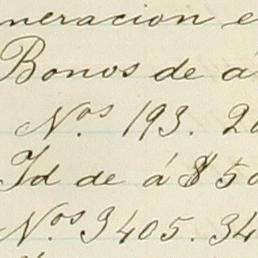 neracion e
Bonos de á
Nos. 193. 20
Id de á $ 50
Nos. 3405. 34